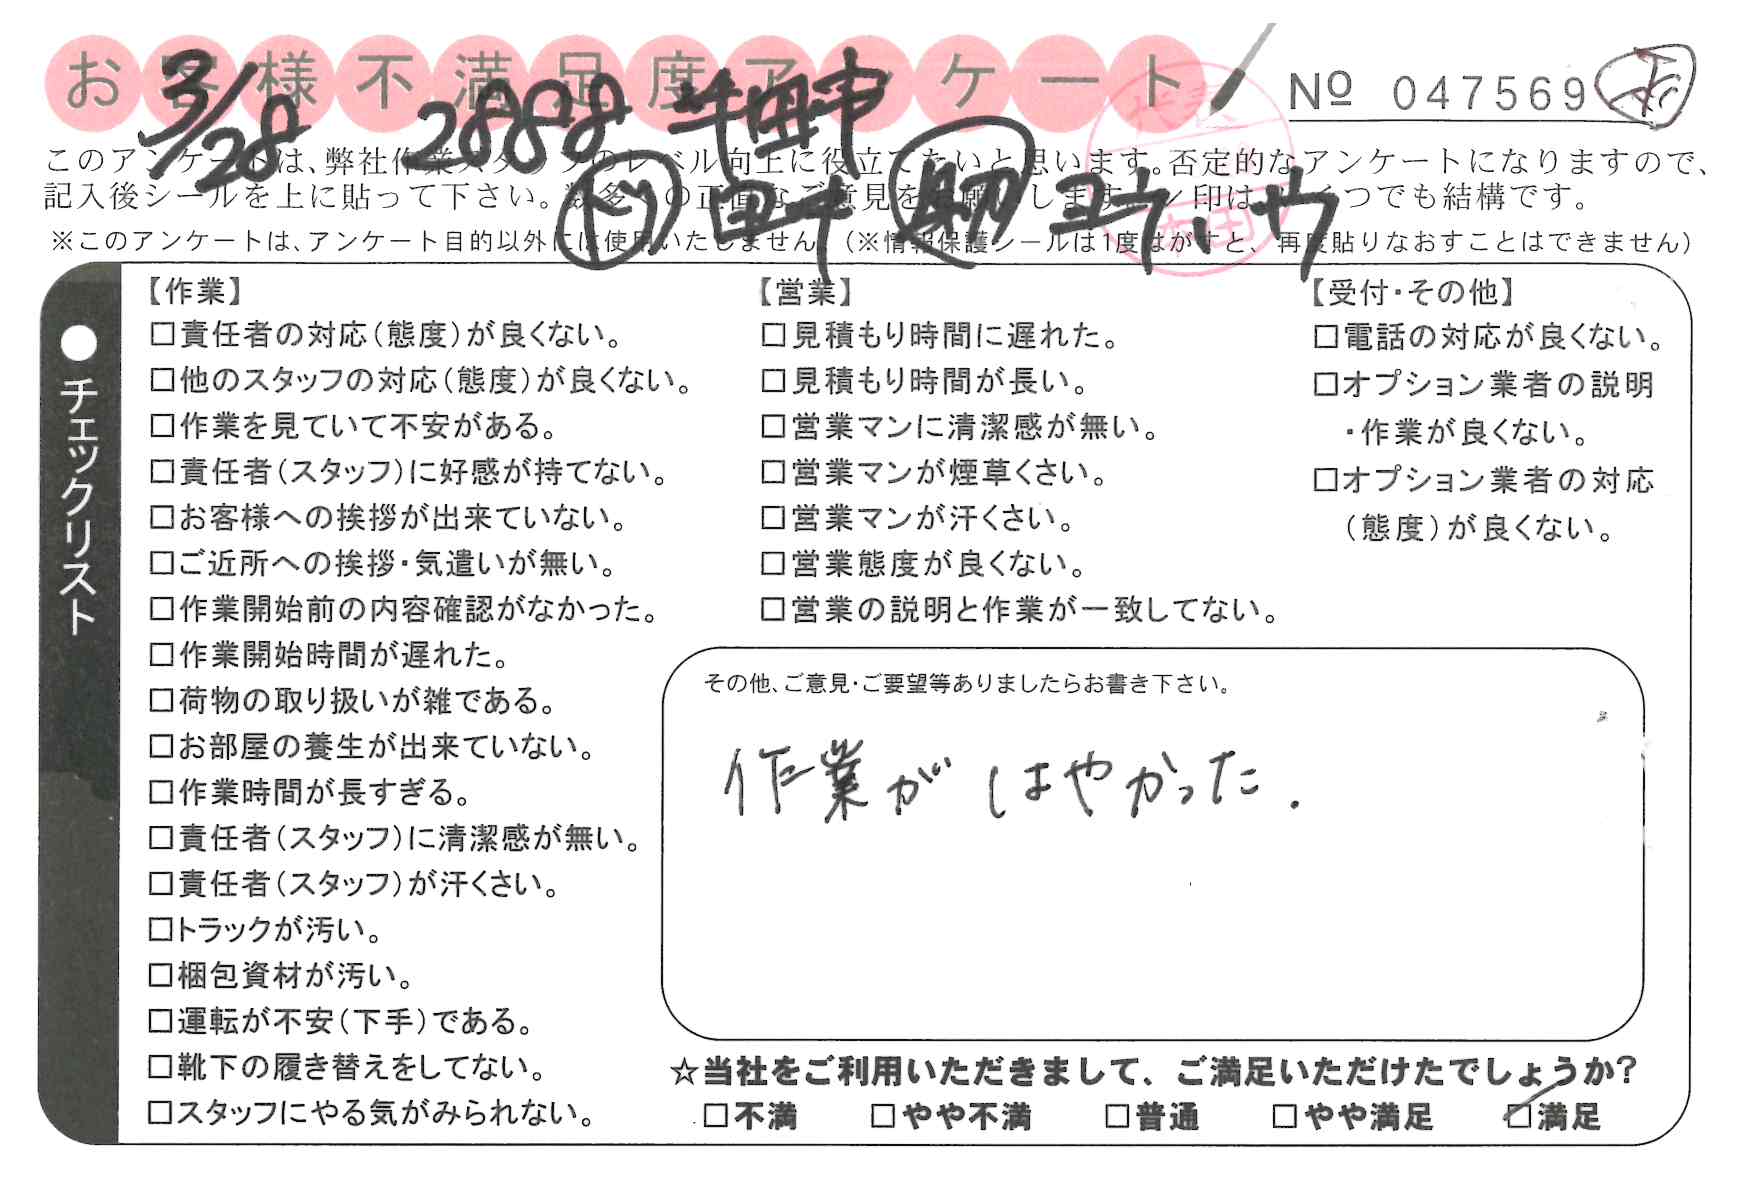 お客様不満足度アンケート
№ 047569
3/28 2888
このアンケートは、弊社作業スタッフのレベル向上に役立てたいと思います。否定的なアンケートになりますので、
記入後シールを上に貼って下さい。数多くの正直なご意見をお願いします。レ印はいくつでも結構です。
※このアンケートは、アンケート目的以外には使用いたしません。(※情報保護シールは1度はがすと、再度貼りなおすことはできません)
●チェックリスト
【作業】
□責任者の対応(態度)が良くない。
□他のスタッフの対応(態度)が良くない。
□作業を見ていて不安がある。
□責任者(スタッフ)に好感が持てない。
□お客様への挨拶が出来ていない。
□ご近所への挨拶・気遣いが無い。
□作業開始前の内容確認がなかった。
□作業開始時間が遅れた。
□荷物の取り扱いが雑である。
□お部屋の養生が出来ていない。
□作業時間が長すぎる。
□責任者(スタッフ)に清潔感が無い。
□責任者(スタッフ)が汗くさい。
□トラックが汚い。
□梱包資材が汚い。
□運転が不安(下手)である。
□靴下の履き替えをしてない。
□スタッフにやる気がみられない。
【営業】
□見積もり時間に遅れた。
□見積もり時間が長い。
□営業マンに清潔感が無い。
□営業マンが煙草くさい。
□営業マンが汗くさい。
□営業態度が良くない。
□営業の説明と作業が一致してない。
【受付・その他】
□電話の対応が良くない。
□オプション業者の説明
・作業が良くない。
□オプション業者の対応
(態度)が良くない。
その他、ご意見・ご要望等ありましたらお書き下さい。
作業がはやかった.
☆当社をご利用いただきまして、ご満足いただけたでしょうか?
□不満 □やや不満 □普通 □やや満足 □満足